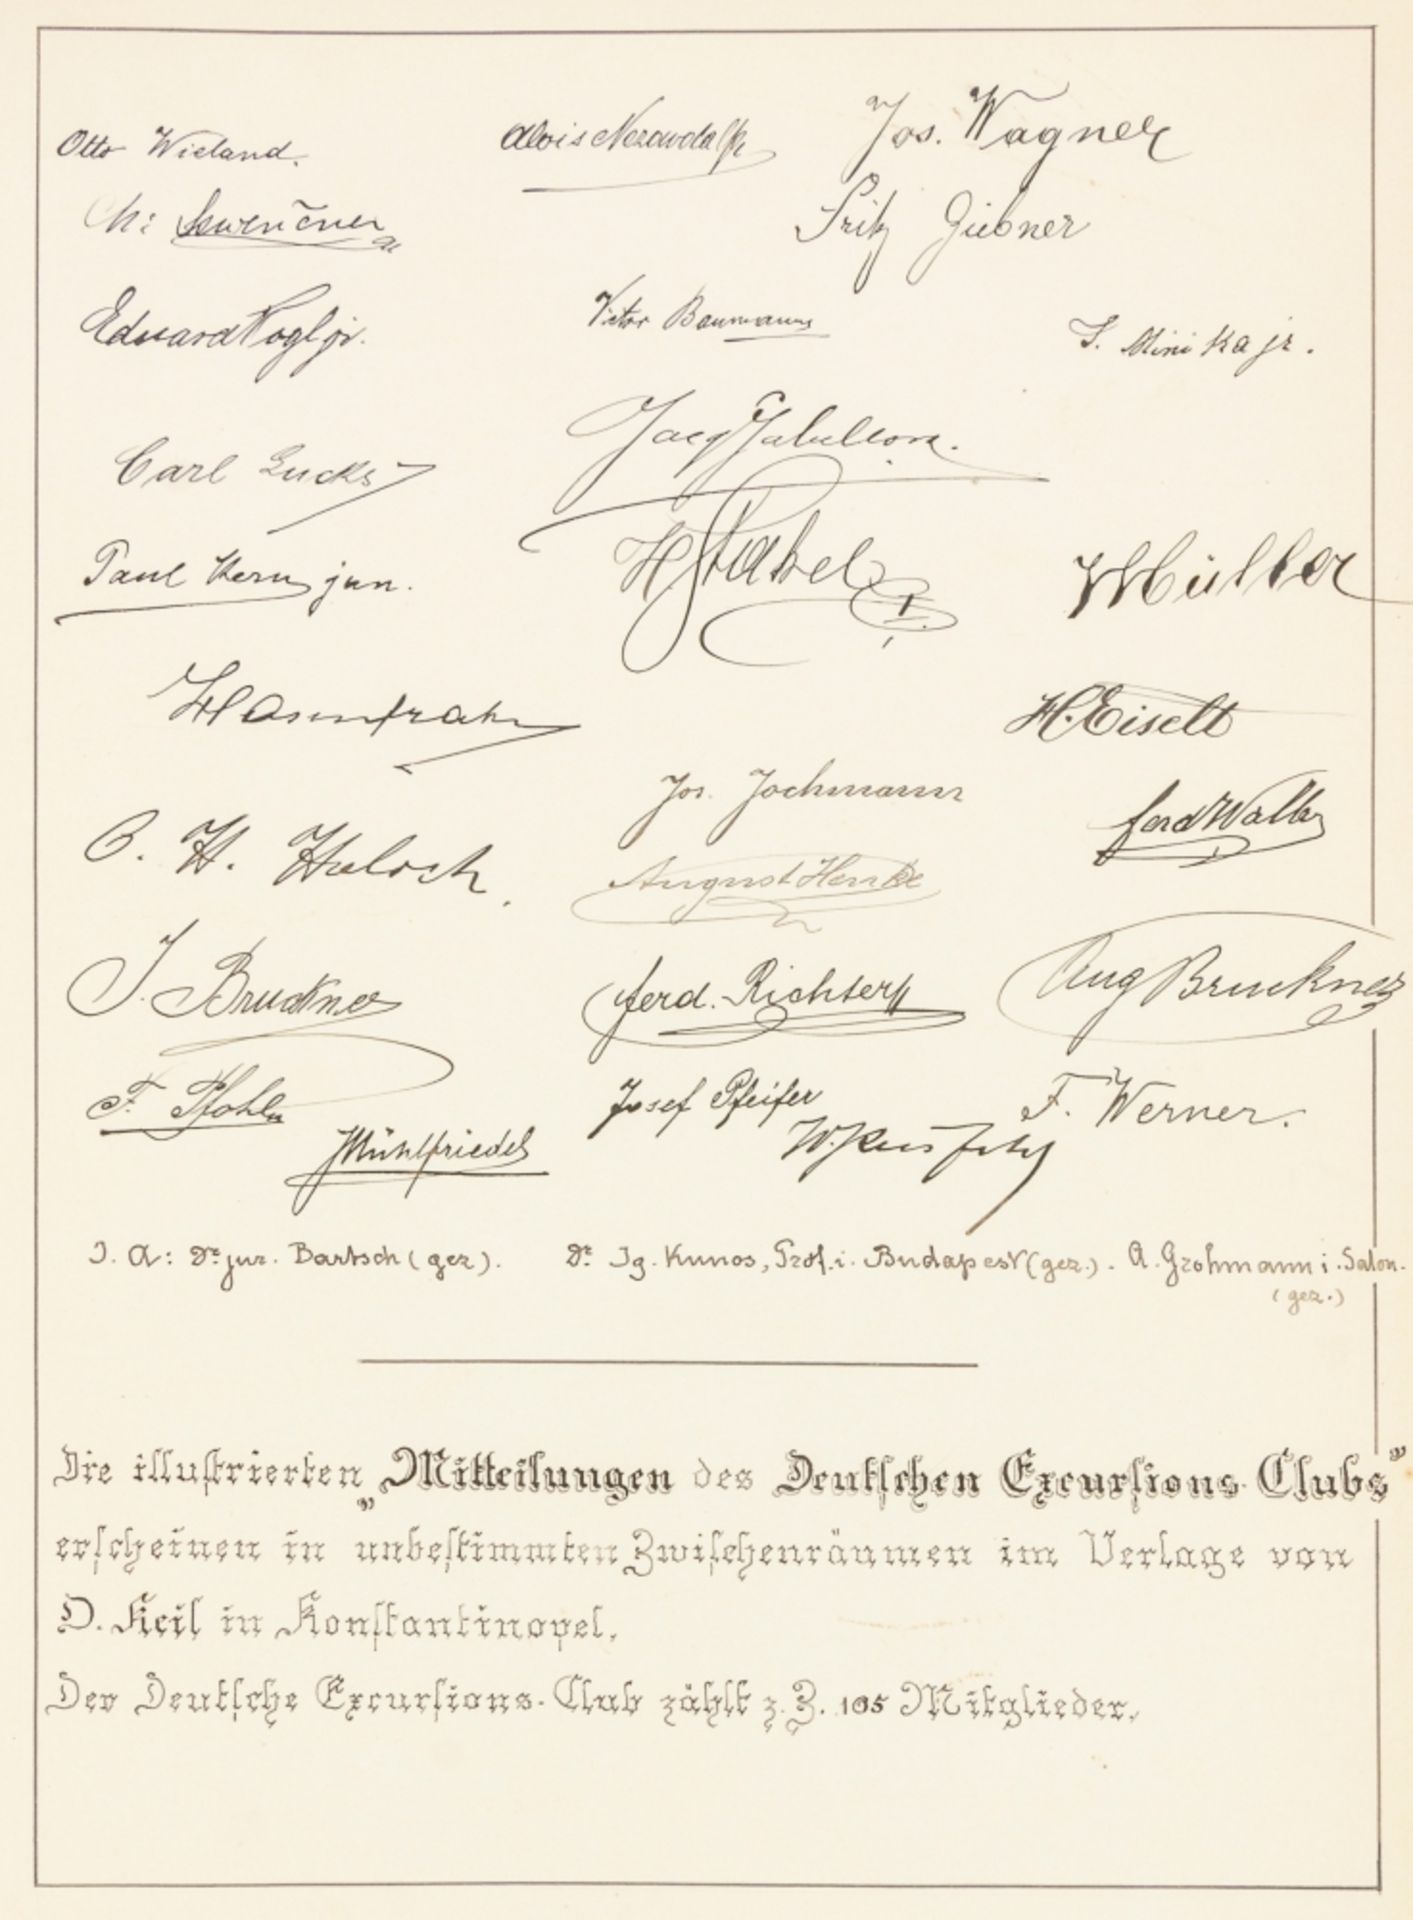 Otto Wieland.
Alois
Jos. Wagner
Fritz Giebner
Eduard Vogl jr.
Victor Baumann
Minika jr.
Carl Lucks
Jacq
Paul Kern jun.
Müller
H. Eiselt
Jos. Jochmann
H.
August Henke
J. Bruckner
Ferd. Richter
Aug Bruckner
F. Pfohl
Josef Pfeifer
F. Werner.
Mühlfriedel
W.
J. A: Dr jur. Bartsch (gez).
Dr. Ig. Kunos, Prof. i. Budapest (gez.). A. Grohmann i. Salon.
(gez.)
Die illustrierten „Mitteilungen des Deutschen Excursions-Clubs”
erscheinen in unbestimmten Zwischenräumen im Verlage von
O. Keil in Konstantinopel.
Der Deutsche Excursions-Club zählt z. Z. 105 Mitglieder.